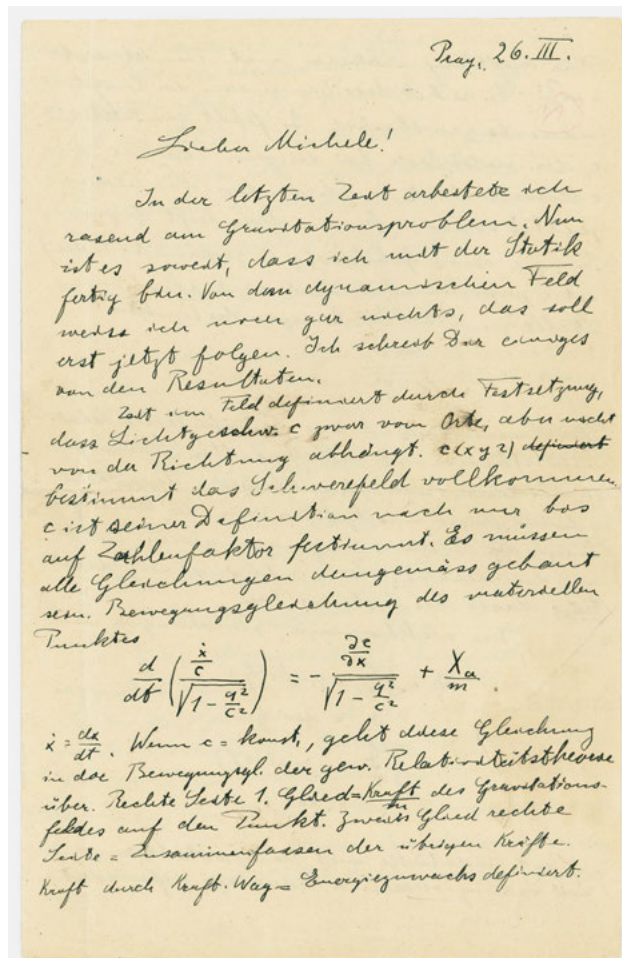 Prag, 26. III.
Lieber Michele!
In der letzten Zeit arbeitete ich
rasend am Gravitationsproblem. Nun
ist es soweit, dass ich mit der Statik
fertig bin. Von dem dynamischen Feld
weiss ich noch gar nichts, das soll
erst jetzt folgen. Ich schreib Dir einiges
von den Resultaten.
Zeit im Feld definiert durch Festsetzung,
dass Lichtgeschw. c zwar vom Orte, aber nicht
von der Richtung abhängt. c(x y z) definiert
bestimmt das Schwerefeld vollkommen.
c ist seiner Definition nach nur bis
auf Zahlenfaktor bestimmt. Es müssen
alle Gleichungen demgemäss gebaut
sein. Bewegungsgleichung des materiellen
Punktes
d/dt ( (ẋ/c) / √(1 - q²/c²) ) = - (∂c/∂x) / √(1 - q²/c²) + Xa/m .
ẋ = dx/dt . Wenn c = konst, geht diese Gleichung
in die Bewegungsgl. der gew. Relativitätstheorie
über. Rechte Seite 1. Glied = Kraft/m des Gravitations-
feldes auf den Punkt. Zweites Glied rechte
Seite = Zusammenfassen der übrigen Kräfte.
Kraft durch Kraft. Weg = Energiezuwachs definiert.